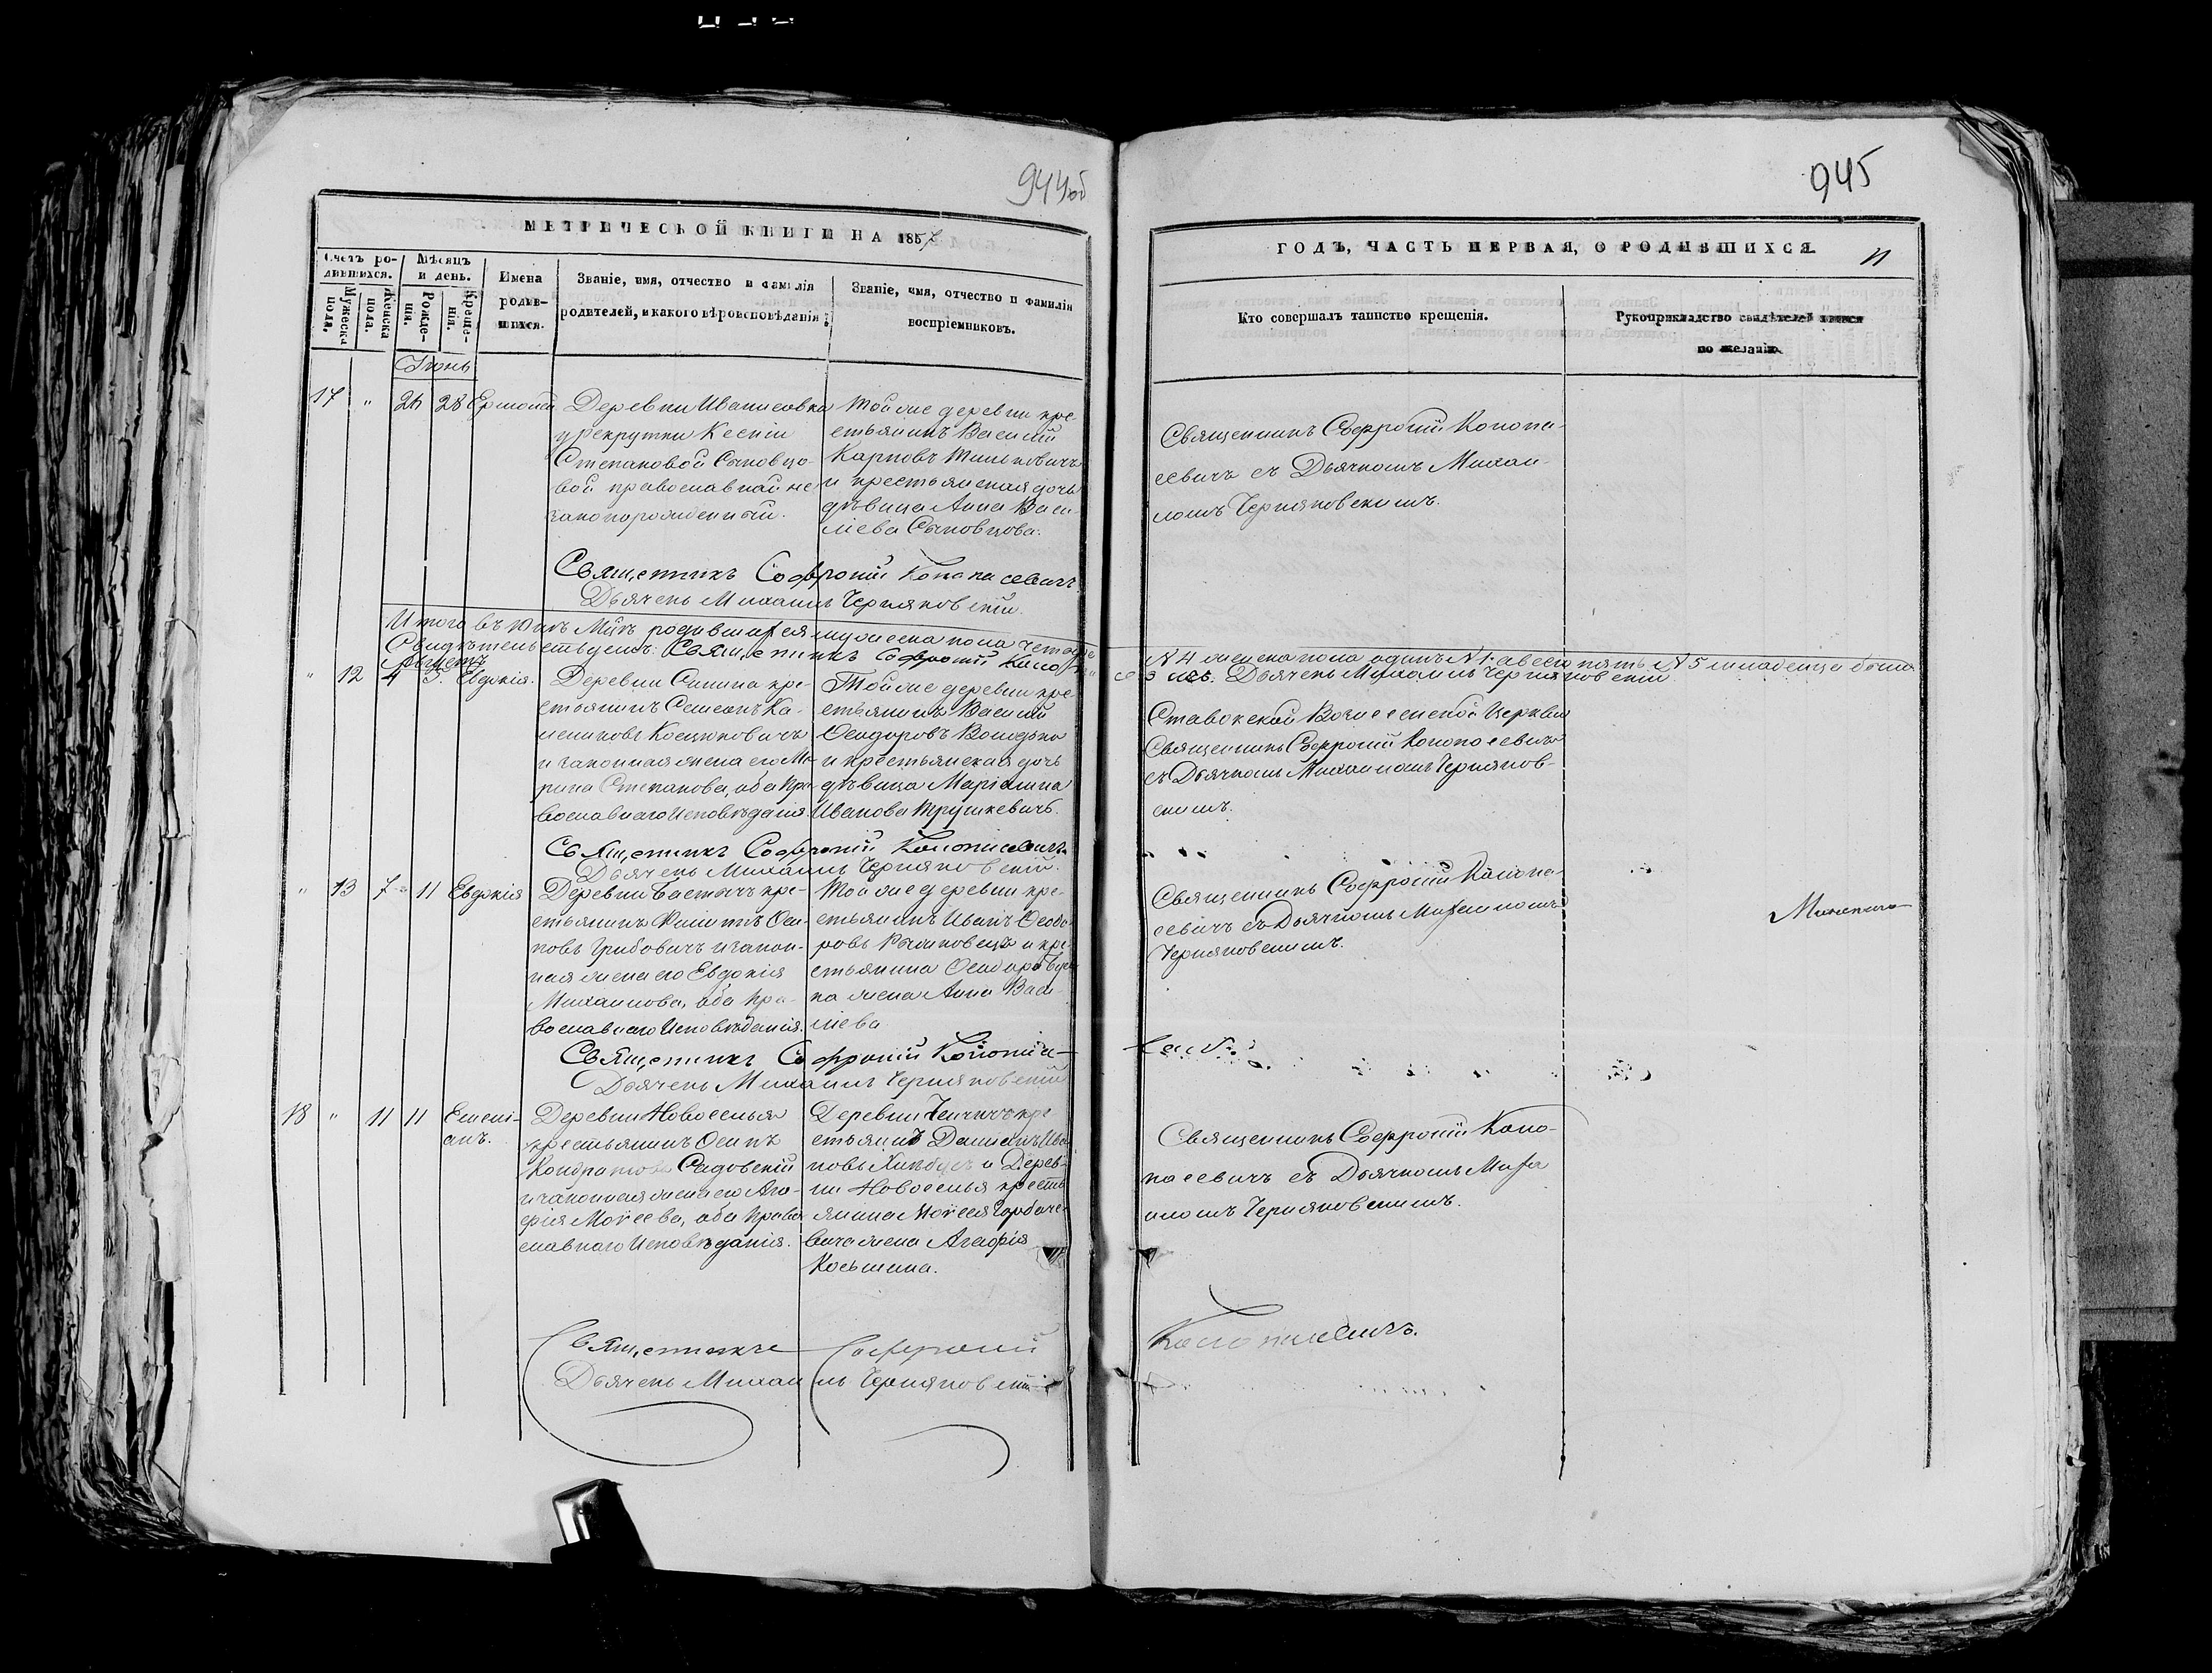 944об
МЕТРИЧЕСКОЙ КНИГИ НА 1857
Счетъ ро-
дившихся.
Мужеска
пола.
Женска
пола.
Мѣсяцъ
и день.
Рожде-
нія.
Креще-
нія.
Имена
родив-
шихся.
Званіе, имя, отчество и фамилія
родителей, и какого вѣроисповѣданія
Званіе, имя, отчество и фамилія
воспріемниковъ.
Іюнь
17 " 26 28 Ермолай
Деревни
у рекрутки Ксеніи
Степановой Сыновцо-
вой православной не-
законорожденный.
Той же деревни кре-
стьянинъ Василій
Карповъ
и крестьянская дочь
дѣвица Анна Васи-
ліева Сыновцова.
Священникъ Софроній Конопасевичъ
Дьячекъ Михаилъ Черняковскій.
Итого въ Юнѣ Мцѣ родившихся мужеска пола четыре
Свидѣтельствуемъ: Священникъ Софроній
" 12 4 5. Евдокія.
Деревни кре-
стьянинъ Семенъ Ка-
Косцюковичъ
и законная жена его Ма-
рина Степанова, оба пра-
вославнаго Исповѣданія.
Той же деревни кре-
стьянинъ Василій
Ѳеодоровъ Володько
и крестьянская дочь
дѣвица Маріанна
Иванова Трушкевичъ.
Священникъ Софроній Конопасевичъ
Дьячекъ Михаилъ Черняковскій.
" 13 7 11 Евдокія
Деревни кре-
стьянинъ Оси-
повъ Грибовичъ и закон-
ная жена его Евдокія
Михаилова, оба пра-
вославнаго Исповѣданія.
Той же деревни кре-
стьянинъ Иванъ Ѳеодо-
ровъ и кре-
стьянина Ѳеодора
жена Анна Васи-
ліева
Священникъ Софроній Конопа-
Дьячекъ Михаилъ Черняковскій
18 " 11 11 Емелі-
анъ.
Деревни Новоселья
крестьянинъ Осипъ
Кондратовъ Садовскій
и законная жена его Ага-
фія Моѵсеева, оба право-
славнаго Исповѣданія.
Деревни кре-
стьянинъ Даміанъ Ива-
новъ и Дерев-
ни Новоселья кресть-
янина Моѵсея Горбаце-
вича жена Агафія
Косьмина.
Священникъ Софроній
Дьячекъ Михаилъ Черняковскій
945
ГОДЪ, ЧАСТЬ ПЕРВАЯ, О РОДИВШИХСЯ.
Кто совершалъ таинство крещенія.
Рукоприкладство свидѣтелей записи
по желанію.
Священникъ Софроній Конопа-
севичъ съ Дьячкомъ Михаи-
ломъ Черняковскимъ.
№ 4 женска пола одинъ № 1. а всего пять № 5 младенца
Дьячекъ Михаилъ Черняковскій
Ставокской Вознесенской Церкви
Священникъ Софроній Конопасевичъ
съ Дьячкомъ Михаиломъ Черняков-
скимъ.
Священникъ Софроній Конопа-
севичъ съ Дьячкомъ Михаиломъ
Черняковскимъ.
Священникъ Софроній Коно-
пасевичъ съ Дьячкомъ Миха-
иломъ Черняковскимъ.
Конопасевичъ.